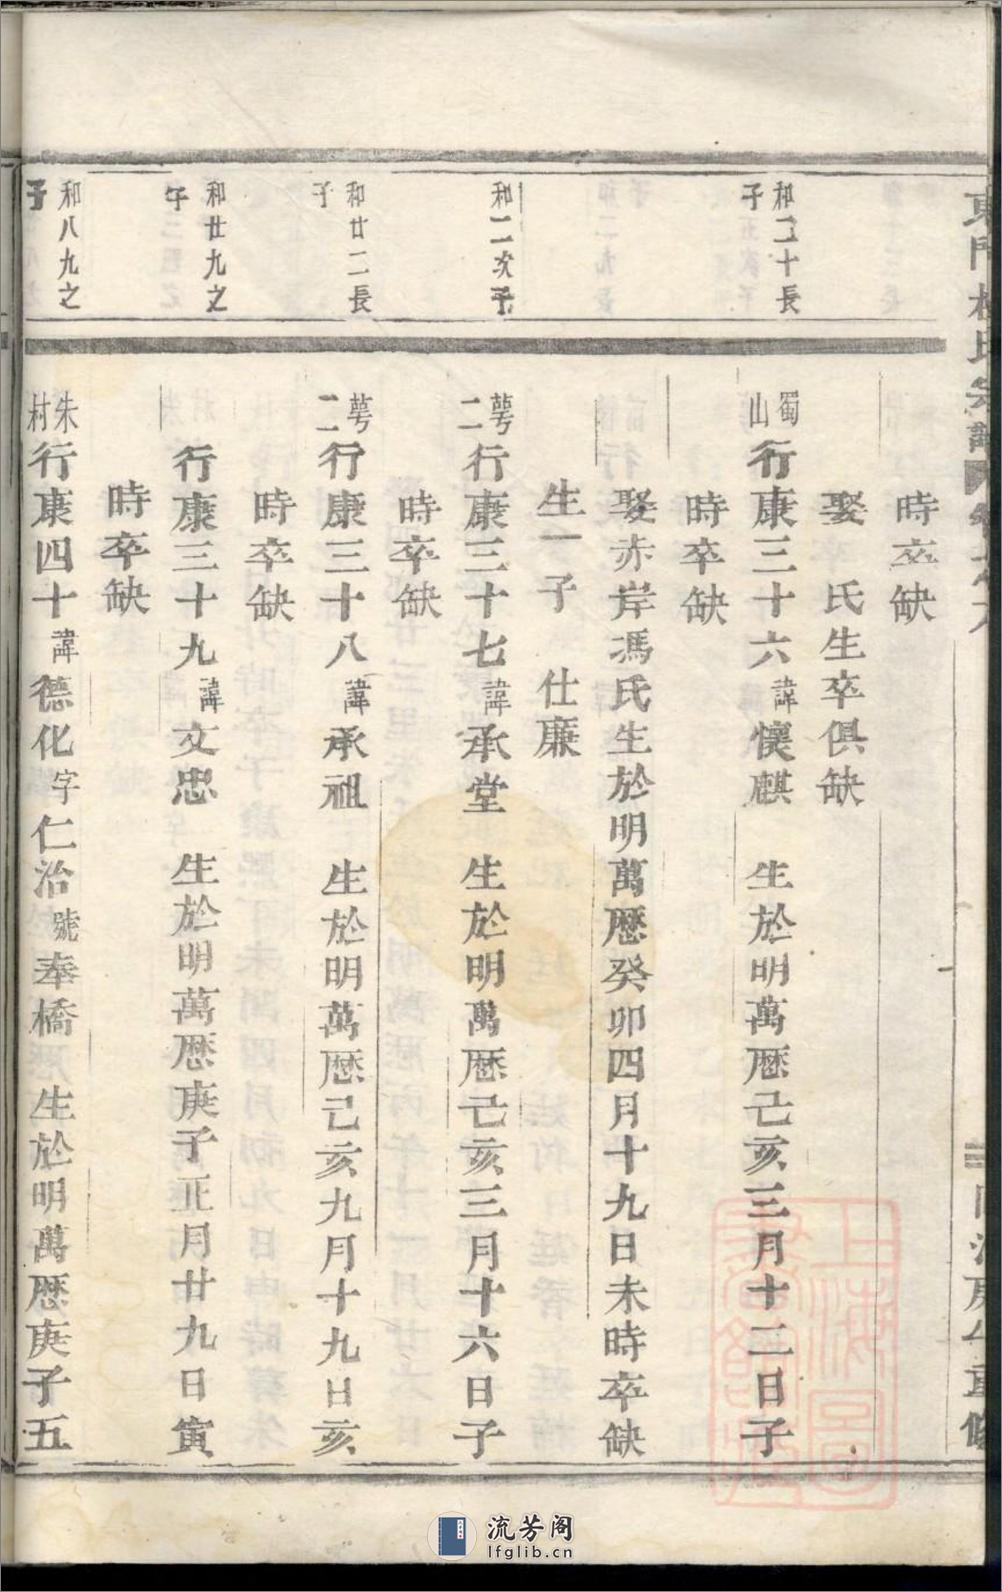 時卒缺
娶　氏生卒俱缺
和二十長子
蜀山行康三十六諱懷麒　生於明萬歷己亥三月十二日子
時卒缺
娶赤岸馮氏生於明萬歷癸卯四月十九日未時卒缺
生一子　仕廉
和二次子
萼二行康三十七諱承堂　生於明萬歷己亥三月十六日子
時卒缺
和廿二長子
萼二行康三十八諱承祖　生於明萬歷己亥九月十九日亥
時卒缺
和廿九之子
行康三十九諱文忠　生於明萬歷庚子正月廿九日寅
時卒缺
和八九之子
朱村行康四十諱德化字仁治號奉橋　生於明萬歷庚子五
流芳阁
lfglib.cn